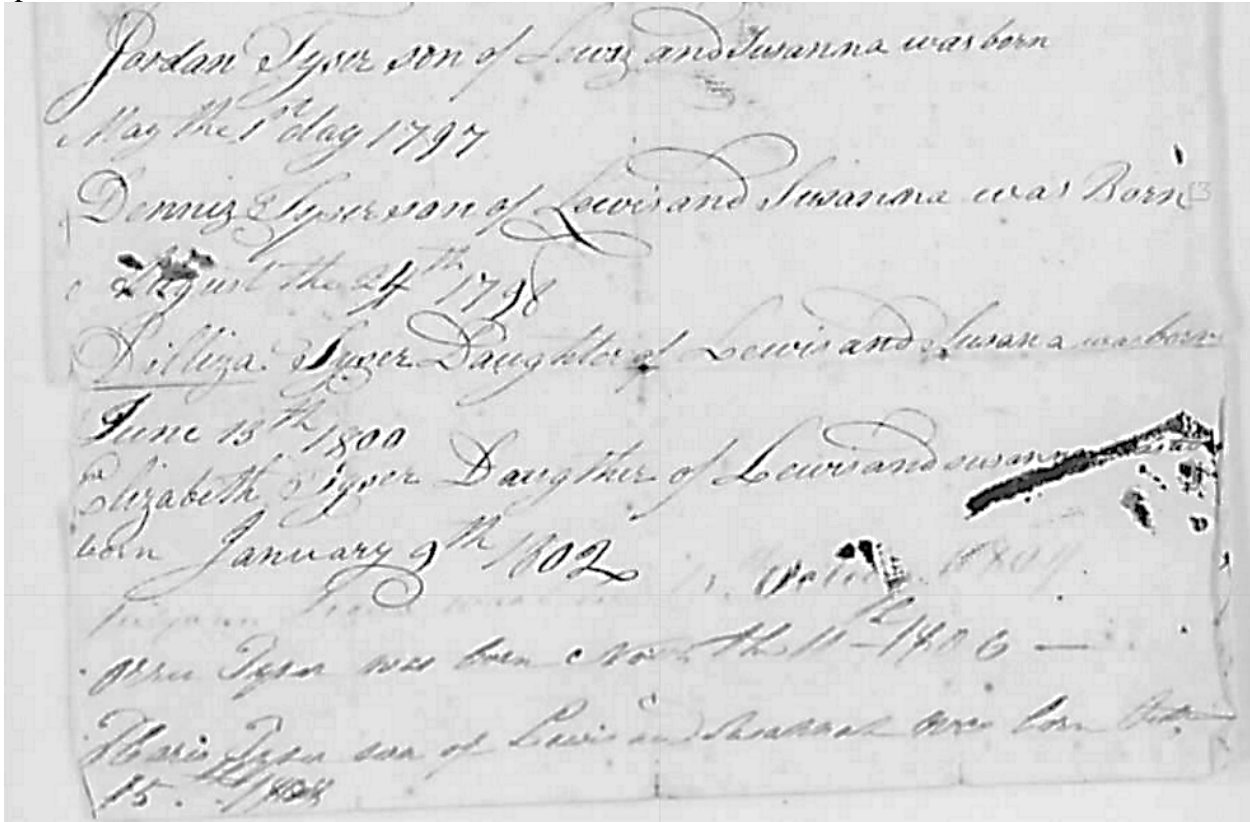 Jordan Tyser son of Lewis and Susanna was born
May the 1st day 1797
Denniz Tyser son of Lewis and Susanna was Born
August the 24th 1798
Dilliza Tyser Daughter of Lewis and Susana was born
June 13th 1800
Elizabeth Tyser Daugther of Lewis and susanna
born January 9th 1802
was 1804
Tyson was born Novr the 11th 1806 —
Tyson son of Lewis and Susannah was born
15th